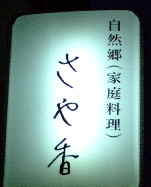 自然郷(家庭料理)
さや香